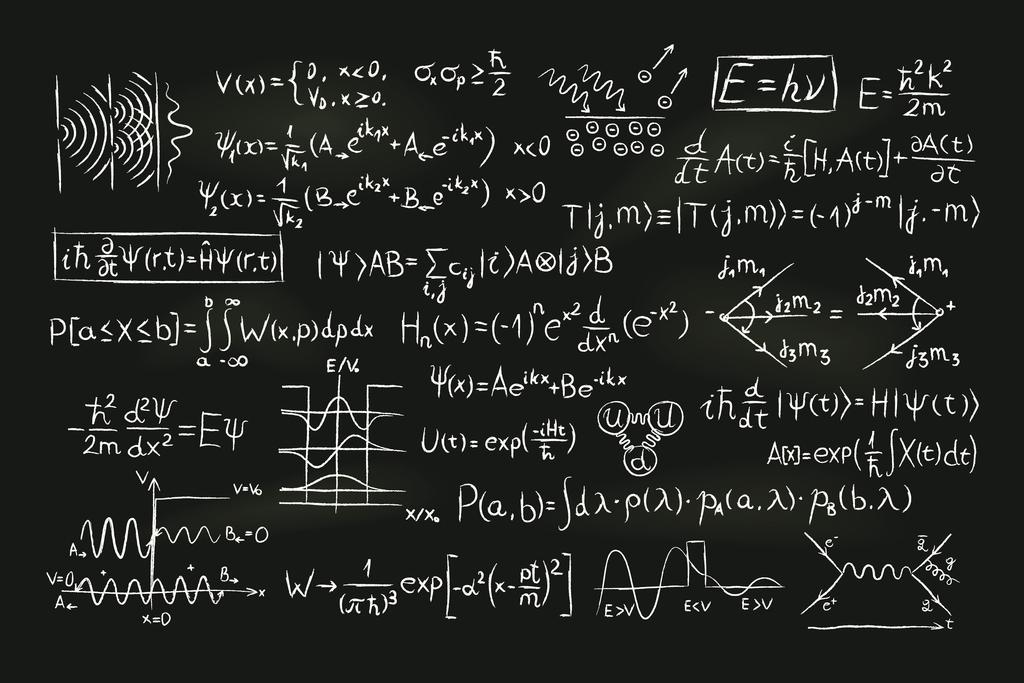 V(x)={0, x<0, V₀, x≥0.
σₓσₚ≥ħ/2
E=hν
E=ħ²k²/2m
Ψ₁(x)=1/√k₁(A→e^ik₁x+A←e^-ik₁x) x<0
d/dt A(t)=i/ħ[H,A(t)]+∂A(t)/∂t
Ψ₂(x)=1/√k₂(B→e^ik₂x+B←e^-ik₂x) x>0
T|j,m⟩≡|T(j,m)⟩=(-1)^j-m|j,-m⟩
iħ ∂/∂t Ψ(r,t)=ĤΨ(r,t)
|Ψ⟩AB=∑i,j cij|i⟩A⊗|j⟩B
- j₁m₁ j₂m₂ j₃m₃ = j₁m₁ j₂m₂ j₃m₃ +
P[a≤X≤b]=∫a^b ∫-∞^∞ W(x,p)dpdx
Hₙ(x)=(-1)ⁿe^x² d/dxⁿ(e^-x²)
E/V₀
x/x₀
Ψ(x)=Ae^ikx+Be^-ikx
-ħ²/2m d²Ψ/dx²=EΨ
U(t)=exp(-iHt/ħ)
u u d
iħ d/dt|Ψ(t)⟩=H|Ψ(t)⟩
A[x]=exp(1/ħ∫X(t)dt)
V
V=V₀
A→
B←=0
V=0
+ +
B→
A←
x
x=0
P(a,b)=∫dλ·ρ(λ)·p_A(a,λ)·p_B(b,λ)
W→1/(πħ)³ exp[-α²(x-pt/m)²]
E>V E<V E>V
e⁻
e⁺
q̄
g
q
t